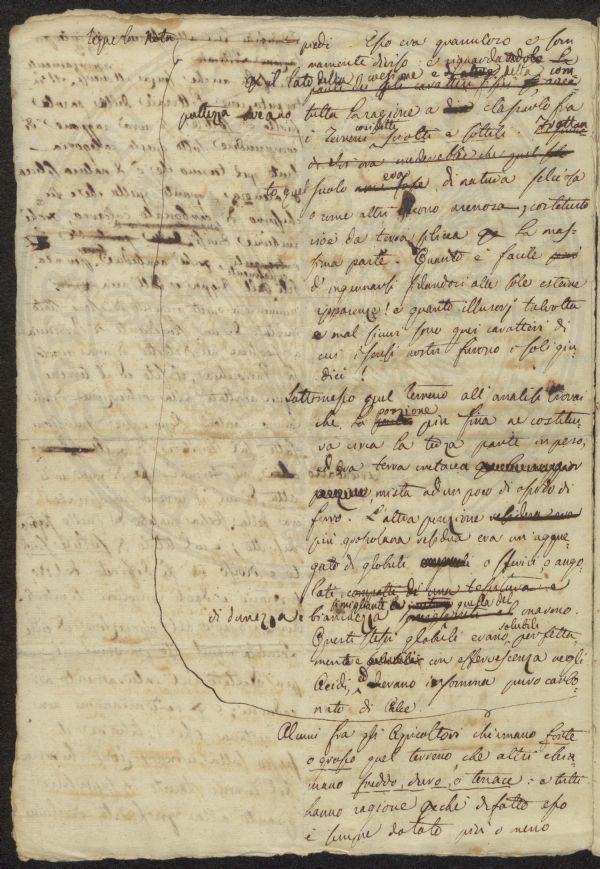 segue la Nota
piedi Esso era granuloso e som
mamente diviso: e riguardandolo
il lato della coesione e della com
pattezza erano
tutta la ragione a classarlo fra
i Terreni così detti sciolti e sottili.
to quel suolo era di natura selciosa
o come altri dicono arenosa, costituito
cioè da terra silicea la mas
sima parte. Quanto è facile
d'ingannarsi fidandosi alle sole esterne
apparenze! e quanto illusorj talvolta
e mal sicuri sono quei caratteri di
cui i sensi nostri furono i soli giu
dici!
Sottomesso quel terreno all'analisi trovai
che la porzione più fina ne costitui
va circa la terza parte in peso,
ed era terra cretacea
mista ad un poco di ossido di
ferro. L'altra porzione
più grossolana residua era un aggre
gato di globuli o sferici o ango
lati
di durezza e bianchezza simigliante a quella del marmo.
Questi stessi globuli erano perfetta
mente solubili con effervescenza negli
Acidi, ed erano insomma puro carbo
nato di Calce.
Alcuni fra gli Agricoltori chiamano forte
o grosso quel terreno, che altri chia
mano freddo, duro, o tenace: e tutti
hanno ragione perché di fatto esso
è sempre dotato più o meno